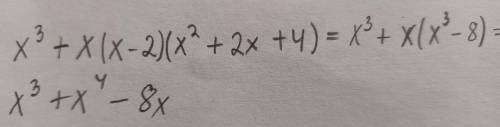 x³ + x(x-2)(x² + 2x + 4) = x³ + x(x³ - 8) =
x³ + x⁴ - 8x